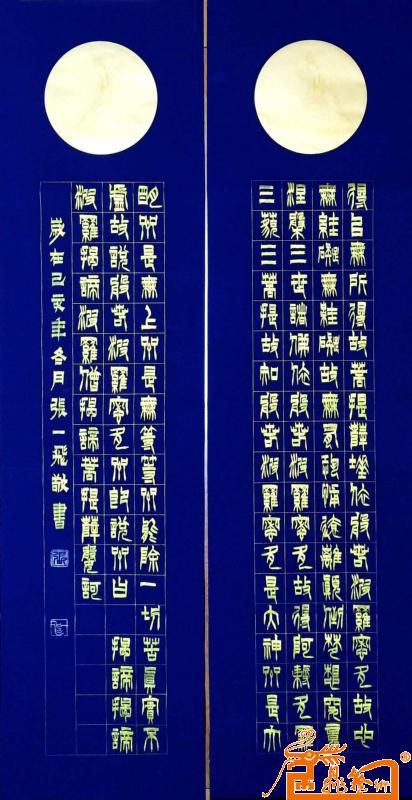 得以無所得故菩提薩埵依般若波羅蜜多故心
無罣礙無罣礙故無有恐怖遠離顛倒夢想究竟
涅槃三世諸佛依般若波羅蜜多故得阿耨多羅
三藐三菩提故知般若波羅蜜多是大神咒是大
明咒是無上咒是無等等咒能除一切苦真實不
虛故說般若波羅蜜多咒即說咒曰 揭諦揭諦
波羅揭諦波羅僧揭諦菩提薩婆訶
歲在己亥年冬月張一飛敬書